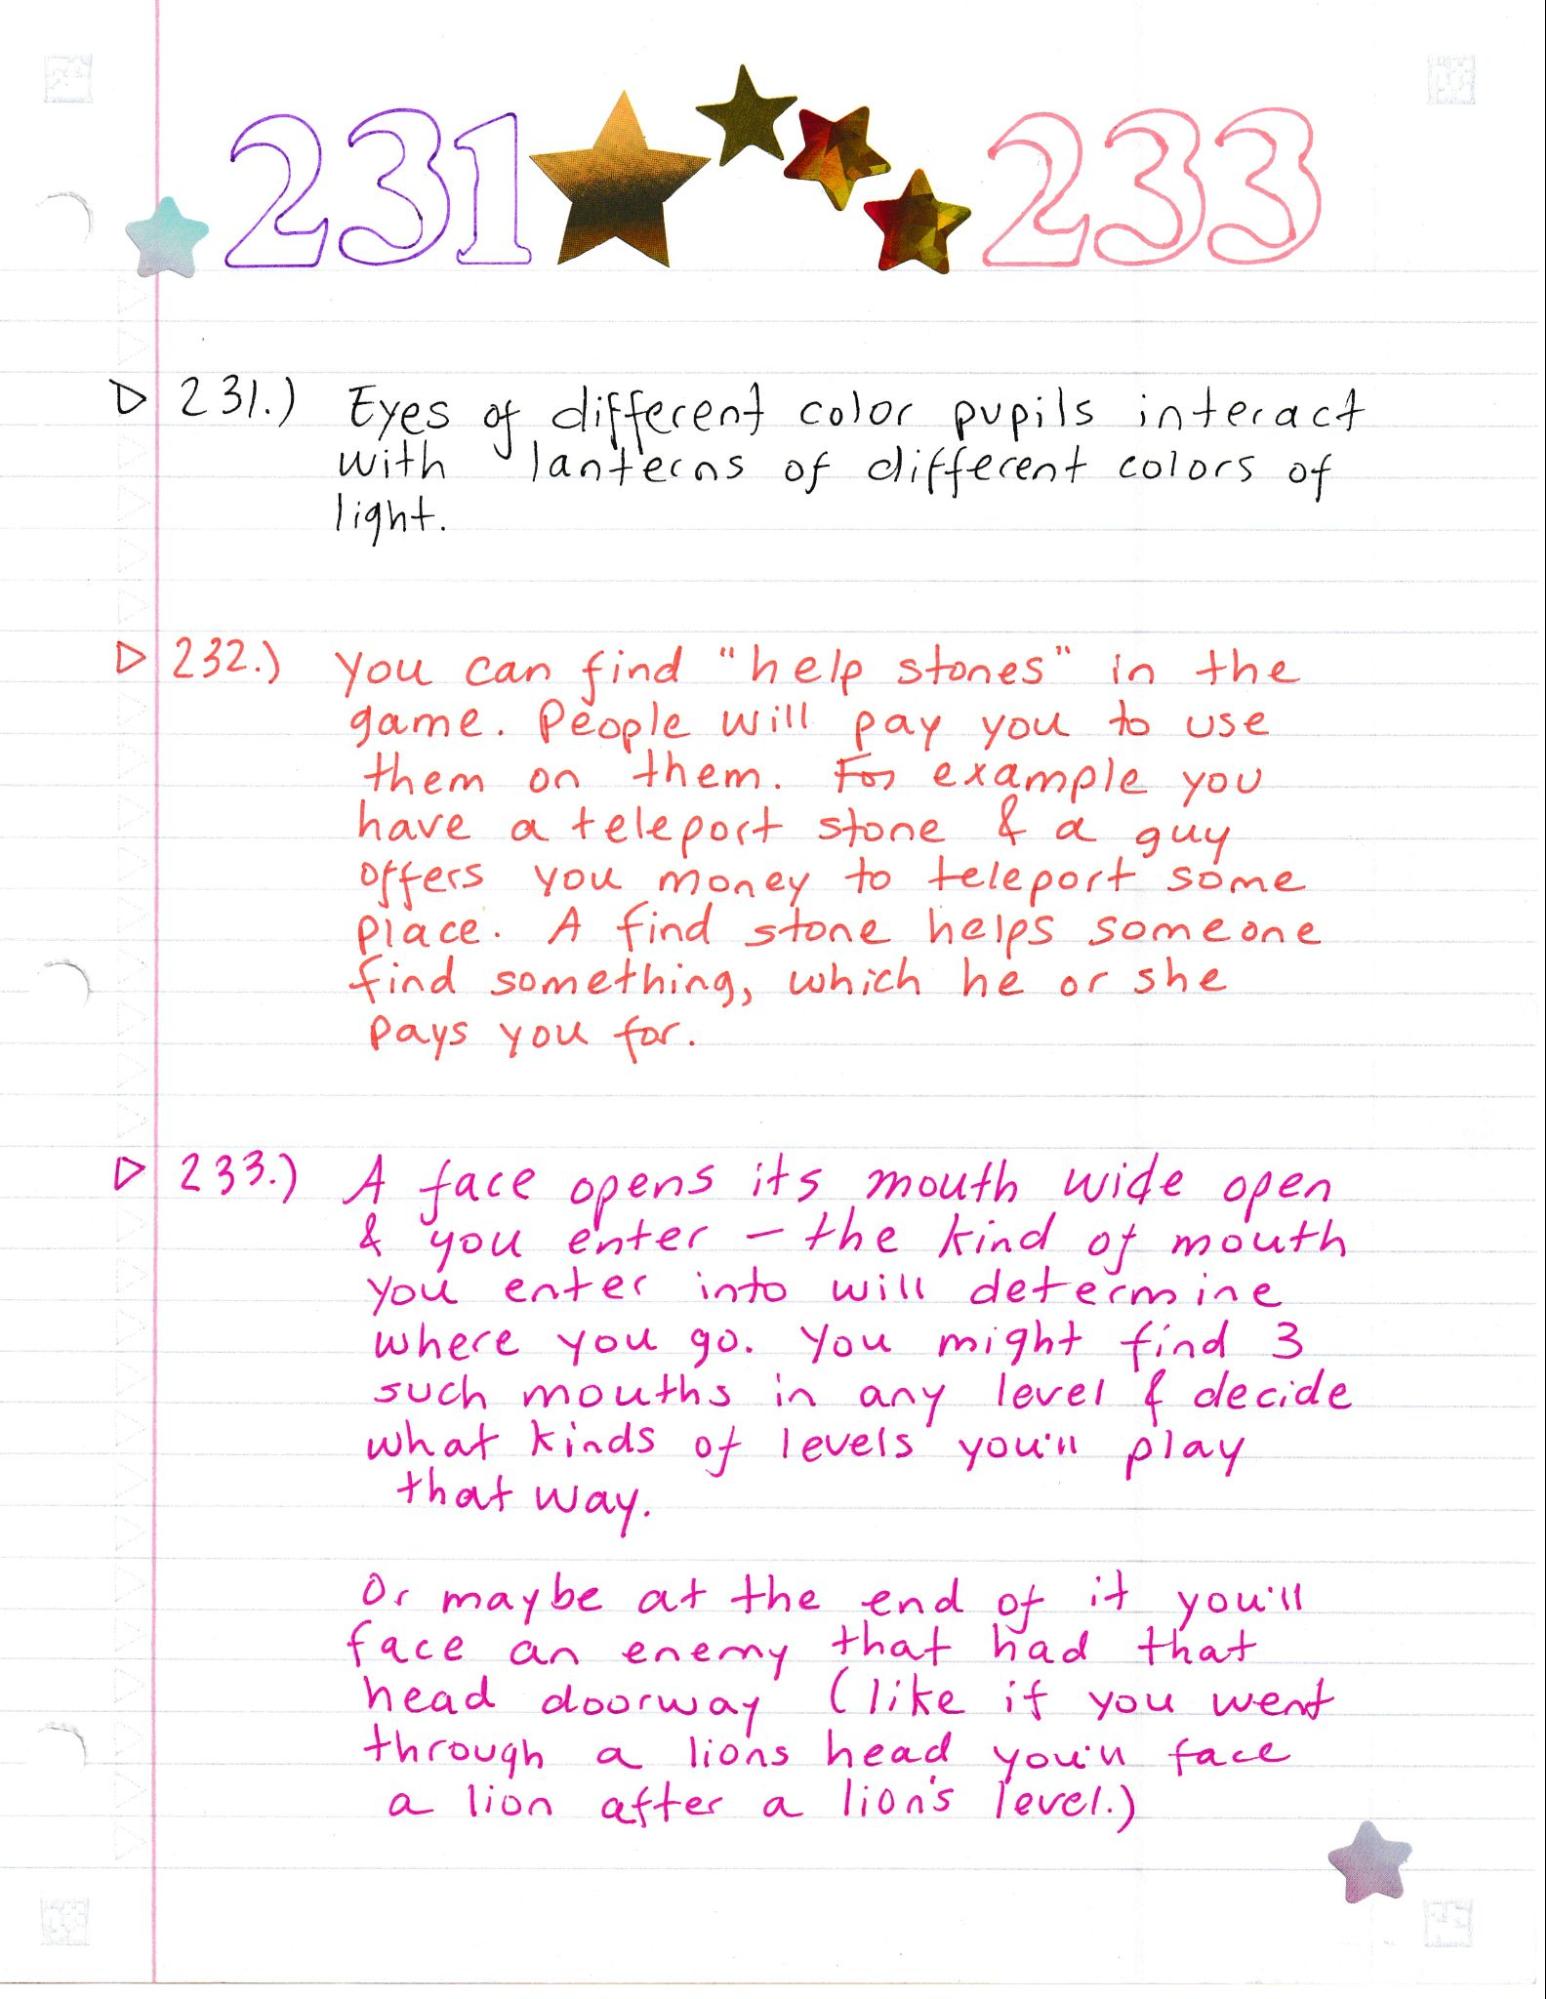 231 233
▷ 231.) Eyes of different color pupils interact
with lanterns of different colors of
light.
▷ 232.) You can find "help stones" in the
game. People will pay you to use
them on them. For example you
have a teleport stone & a guy
offers you money to teleport some
place. A find stone helps someone
find something, which he or she
pays you for.
▷ 233.) A face opens its mouth wide open
& you enter – the kind of mouth
you enter into will determine
where you go. You might find 3
such mouths in any level & decide
what kinds of levels you'll play
that way.
Or maybe at the end of it you'll
face an enemy that had that
head doorway (like if you went
through a lions head you'll face
a lion after a lion's level.)